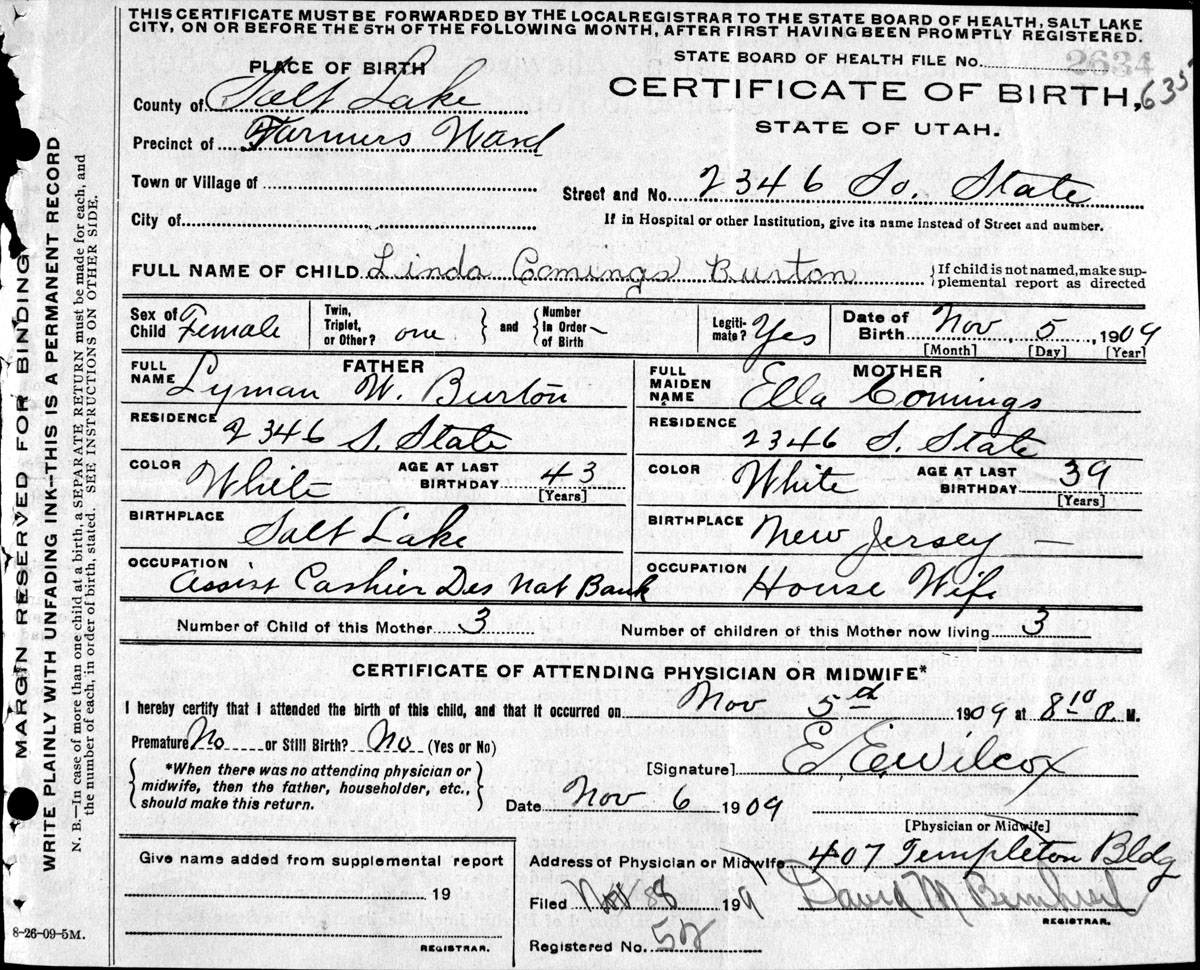 THIS CERTIFICATE MUST BE FORWARDED BY THE LOCAL REGISTRAR TO THE STATE BOARD OF HEALTH, SALT LAKE
CITY, ON OR BEFORE THE 5TH OF THE FOLLOWING MONTH, AFTER FIRST HAVING BEEN PROMPTLY REGISTERED.
STATE BOARD OF HEALTH FILE No. 2634
PLACE OF BIRTH
CERTIFICATE OF BIRTH, 635
County of Salt Lake
STATE OF UTAH.
Precinct of Farmers Ward
Town or Village of
Street and No. 2346 So. State
City of
If in Hospital or other Institution, give its name instead of Street and number.
FULL NAME OF CHILD Linda Comings Burton
If child is not named, make sup-
plemental report as directed
Sex of Child Female Twin, Triplet, or Other? one and Number In Order of Birth – Legiti-mate? Yes Date of Birth Nov 5, 1909
[Month] [Day] [Year]
FATHER
FULL NAME Lyman W. Burton
RESIDENCE 2346 S. State
COLOR White AGE AT LAST BIRTHDAY 43 [Years]
BIRTHPLACE Salt Lake
OCCUPATION Assist Cashier Des Nat Bank
MOTHER
FULL MAIDEN NAME Ella Comings
RESIDENCE 2346 S. State
COLOR White AGE AT LAST BIRTHDAY 39 [Years]
BIRTHPLACE New Jersey –
OCCUPATION House Wife
Number of Child of this Mother 3 Number of children of this Mother now living 3
CERTIFICATE OF ATTENDING PHYSICIAN OR MIDWIFE*
I hereby certify that I attended the birth of this child, and that it occurred on Nov 5th 1909 at 8 10 P. M.
Premature No or Still Birth? No (Yes or No)
*When there was no attending physician or
midwife, then the father, householder, etc.,
should make this return.
[Signature] E. E. Wilcox
Date Nov 6 1909
[Physician or Midwife]
Give name added from supplemental report
19
REGISTRAR.
Address of Physician or Midwife 407 Templeton Bldg
Filed Nov 8 190 David M
REGISTRAR.
Registered No. 52
8-26-09-5M.
MARGIN RESERVED FOR BINDING
WRITE PLAINLY WITH UNFADING INK—THIS IS A PERMANENT RECORD
N. B.—In case of more than one child at a birth, a SEPARATE RETURN must be made for each, and
the number of each, in order of birth, stated. SEE INSTRUCTIONS ON OTHER SIDE.